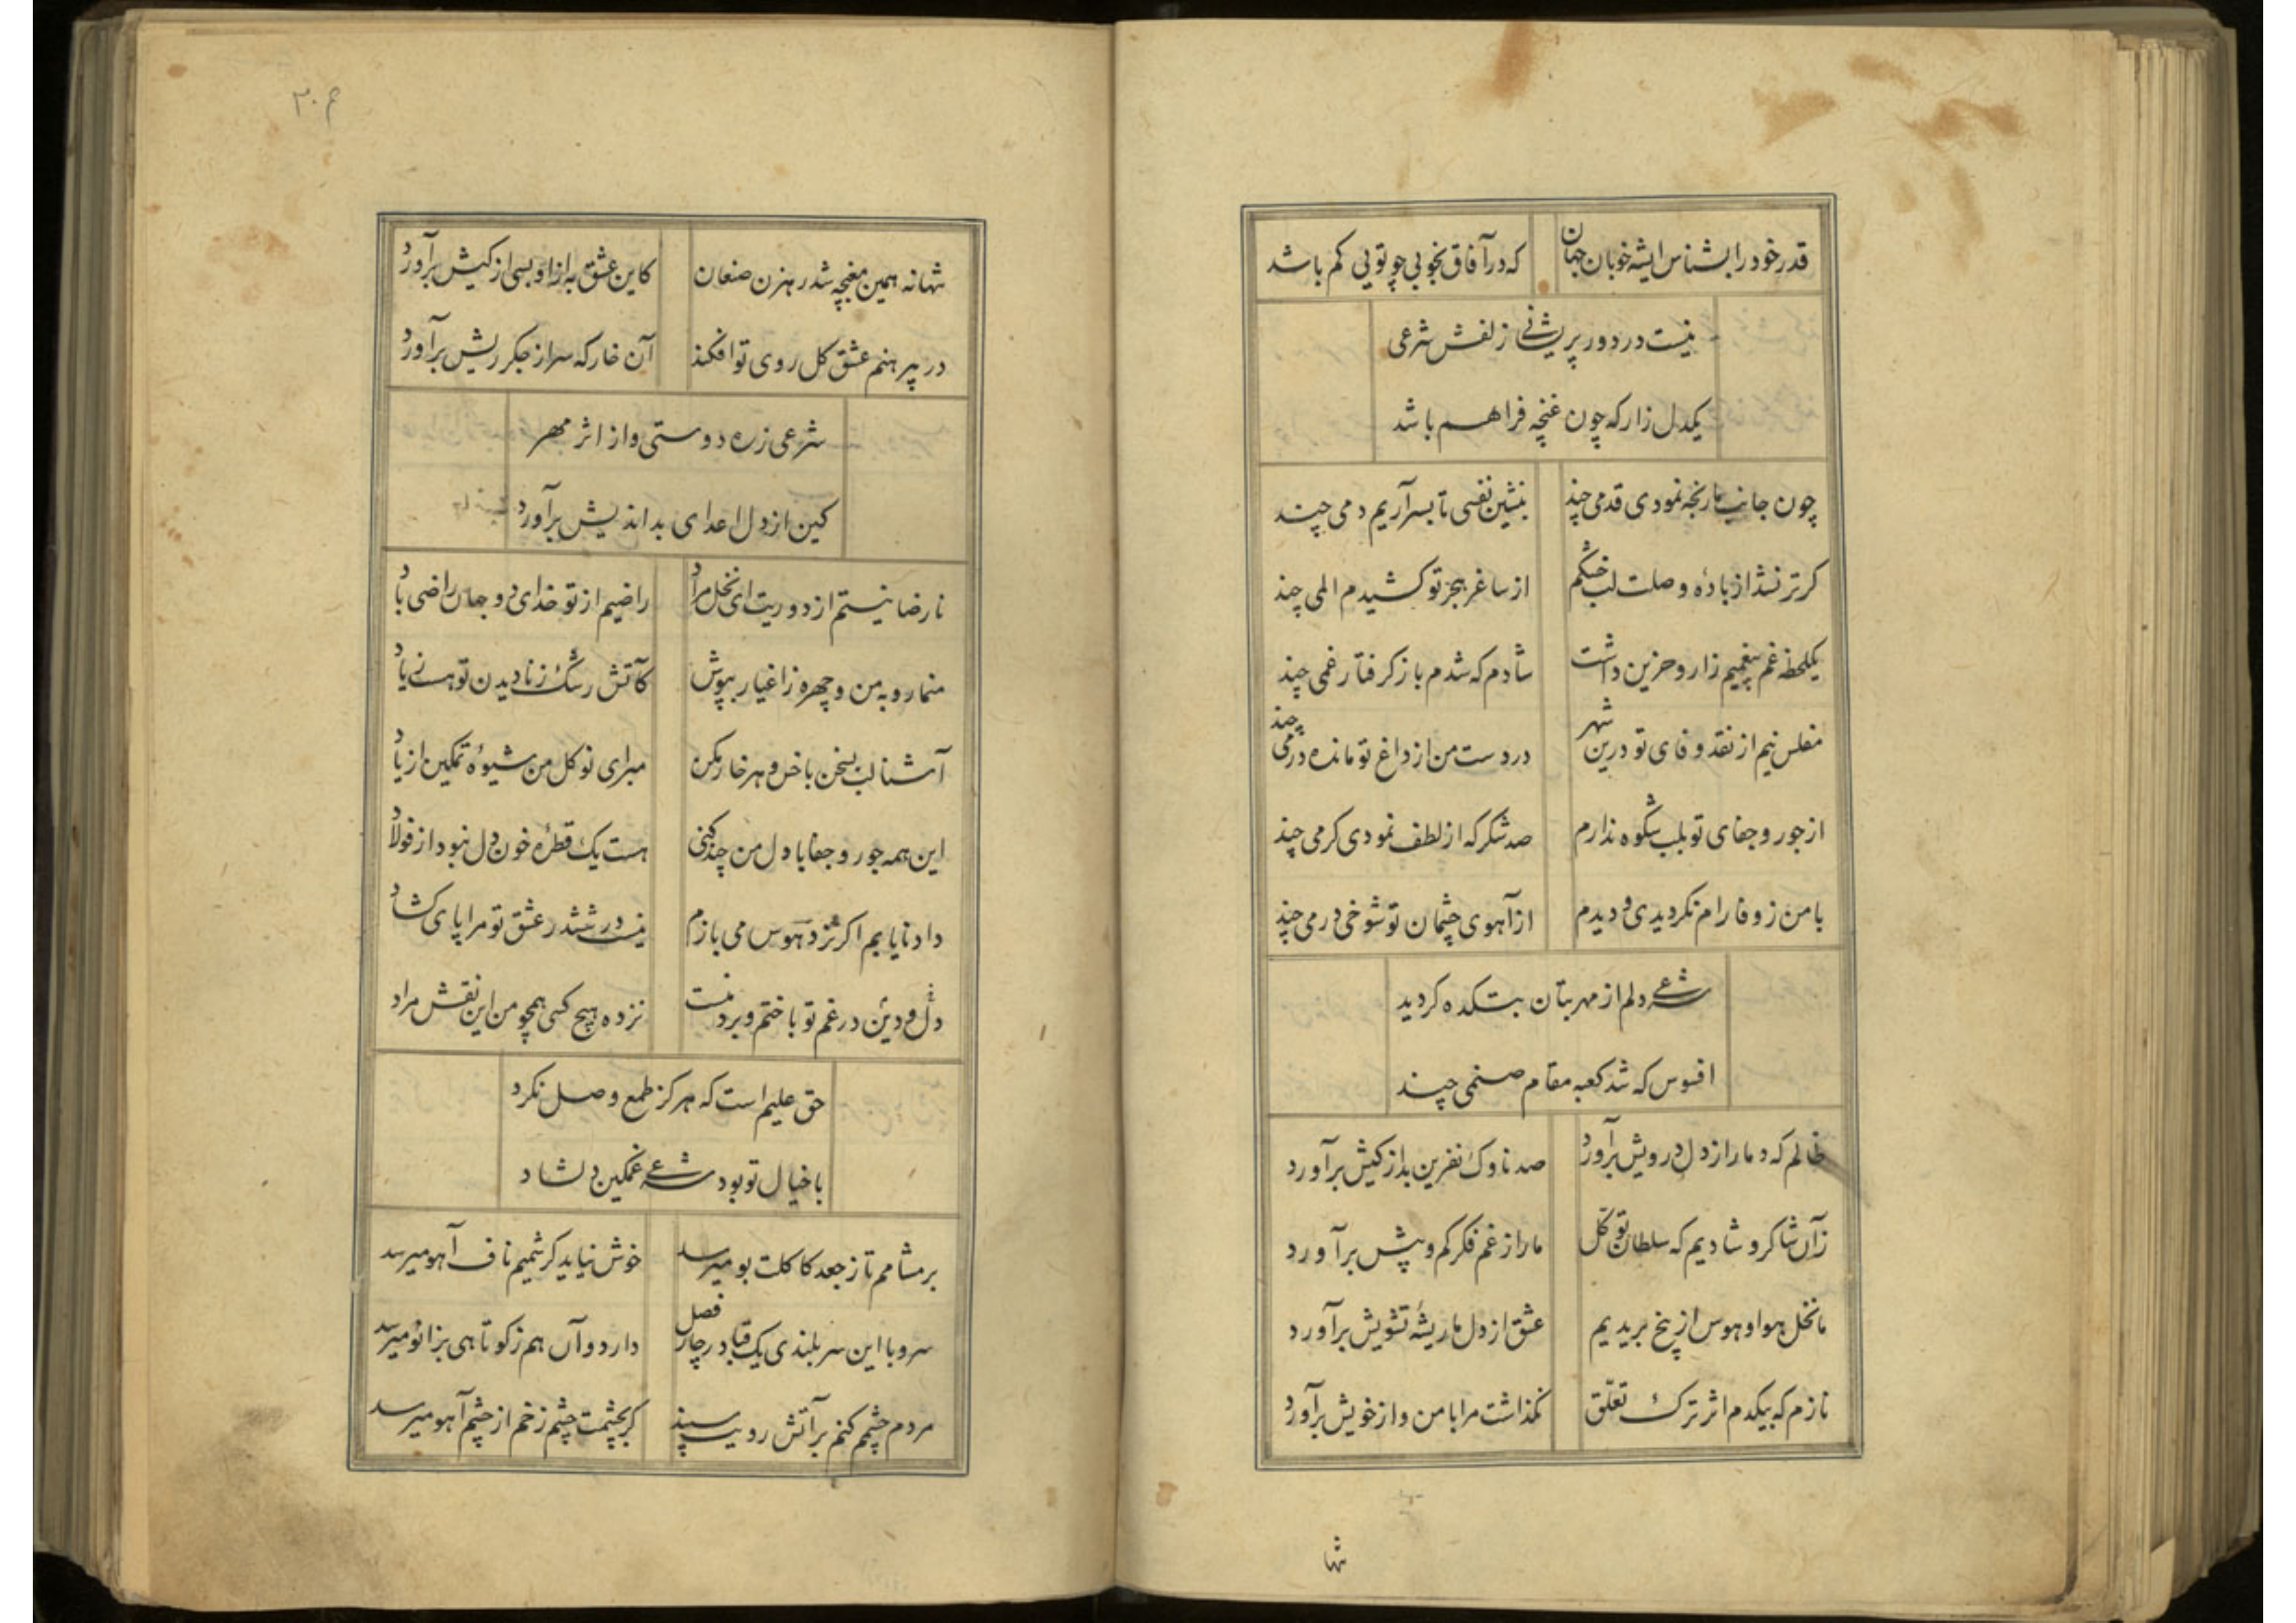 قدر خود را بشناس ای شه خوبان جهان
که در آفاق بخوبی چو تویی کم باشد
نیست در دور پریشانی زلفش شرعی
یکدل زار که چون غنچه فراهم باشد
چون جانب ما رنجه نمودی قدمی چند
بنشین نفسی تا بسر آریم دمی چند
گر تر نشد از بادهٔ وصلت لب خشکم
از ساغر هجر تو کشیدم المی چند
یکلحظه غم بیغمیم زار و حزین داشت
شادم که شدم باز گرفتار غمی چند
مفلس نیم از نقد وفای تو درین شهر
در دست من از داغ تو مانده درمی چند
از جور و جفای تو بلب شکوه ندارم
صد شکر که از لطف نمودی کرمی چند
با من ز وفا رام نگردیدی و دیدم
از آهوی چشمان تو شوخی و رمی چند
شرعی دلم از مهر بتان بتکده گردید
افسوس که شد کعبه مقام صنمی چند
ظالم که دمار از دل درویش برآورد
صد ناوک نفرین بد از کیش برآورد
زآن شاکر و شادیم که سلطان توکل
ما را ز غم فکر کم و پیش برآورد
ما نخل هوا و هوس از بیخ بریدیم
عشق از دل ما ریشهٔ تشویش برآورد
نازم که بیکدم اثر ترک تعلق
نگذاشت مرا با من و از خویش برآورد
تنها
۳۰۴
تنها نه همین مغبچه شد رهزن صنعان
کاین عشق به از او بسی از کیش برآورد
در پیرهنم عشق گل روی تو افکند
آن خار که سر از جگر ریش برآورد
شرعی زره دوستی و از اثر مهر
کین از دل اعدای بداندیش برآورد
نارضا نیستم از دوریت ای نخل مراد
راضیم از تو خدای دو جهان راضی باد
منما رو به من و چهره ز اغیار بپوش
کآتش رشک ز نادیدن تو هست زیاد
آشنا لب بسخن با خس و هر خار مکن
مبر ای نوگل من شیوهٔ تمکین از یاد
این همه جور و جفا با دل من چند کنی
هست یک قطرهٔ خون دل نبود از فولاد
داد نایابم اگر نرد هوس می بازم
نیست در ششدر عشق تو مرا پای گشاد
دل و دین در غم تو باختم و برد منست
نزده هیچ کسی همچو من این نقش مراد
حق علیم است که هرگز طمع وصل نکرد
با خیال تو بود شرعی غمگین دلشاد
بر مشامم تا ز جعد کاکلت بو میرسد
خوش نیاید گر شمیم ناف آهو میرسد
سرو با این سربلندی یک قبا در چار فصل
دارد و آن هم ز کوتاهی بزانو میرسد
مردم چشمم کنم بر آتش رویت سپند
گر بچشمت چشم زخم از چشم آهو میرسد